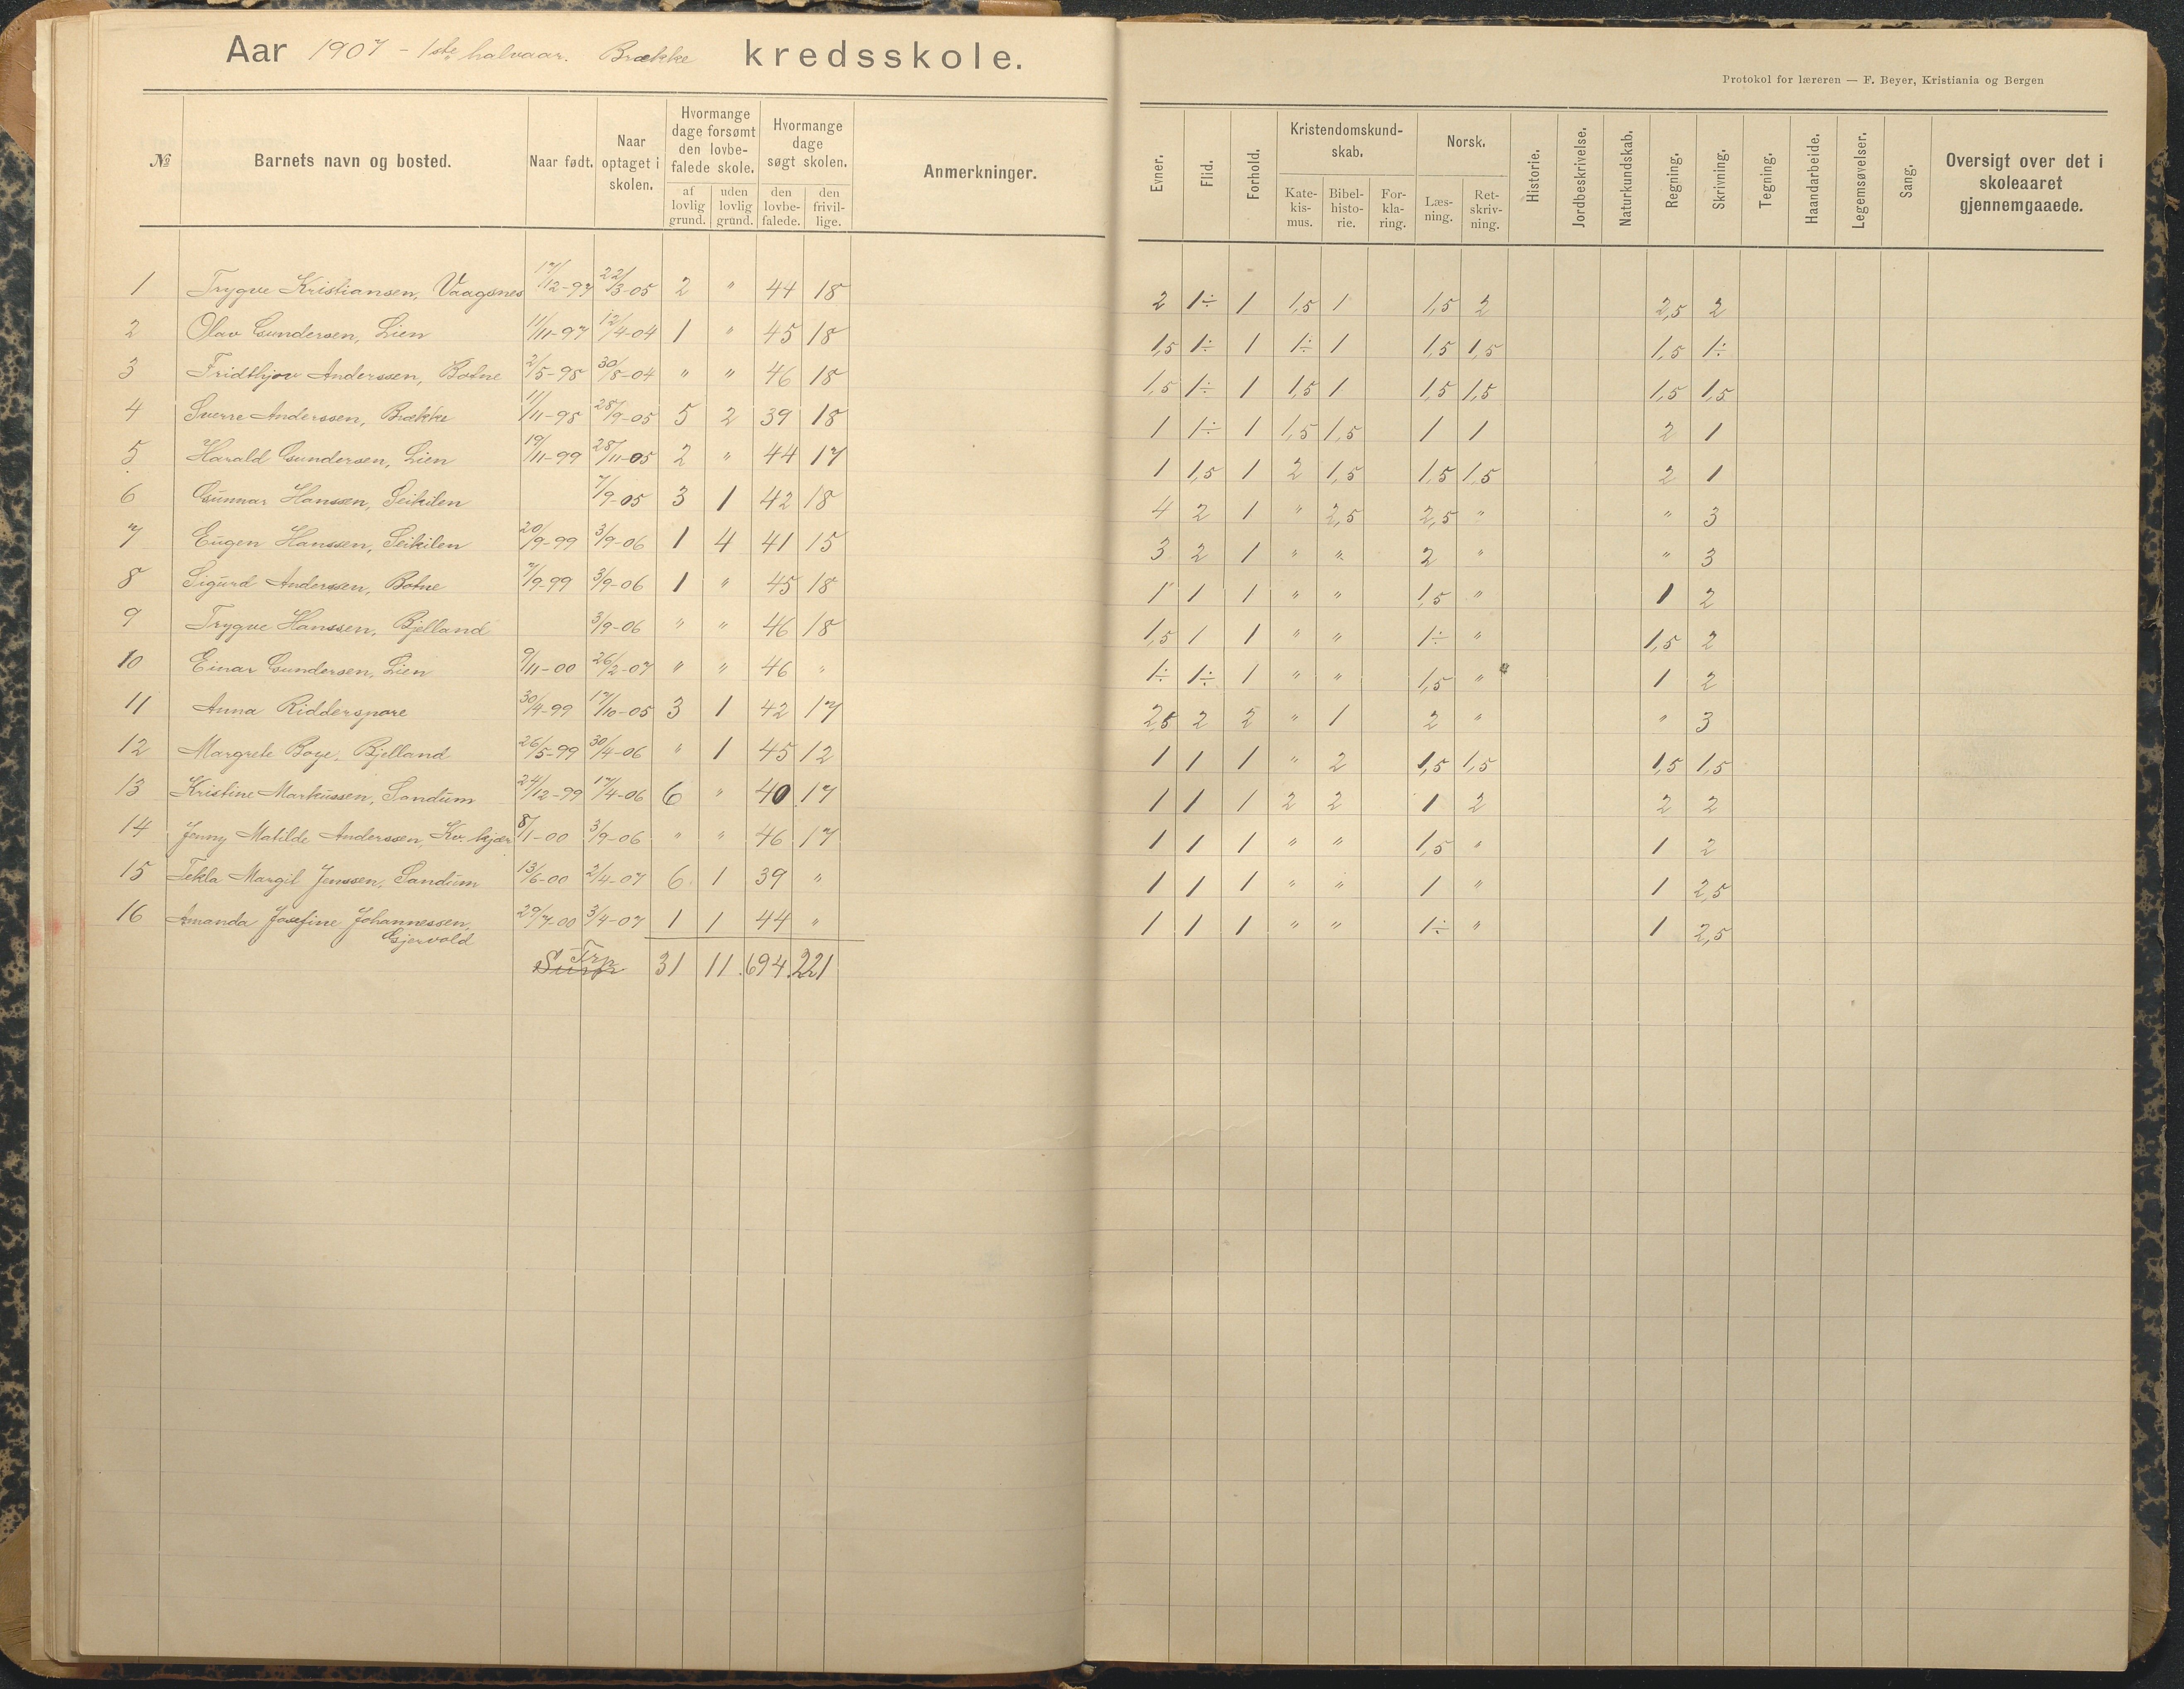 Aar 1907 - 1ste halvaar. Brække kredsskole.
Protokol for læreren — F. Beyer, Kristiania og Bergen
№ | Barnets navn og bosted. | Naar født. | Naar optaget i skolen. | Hvormange dage forsømt den lovbefalede skole. af lovlig grund. | uden lovlig grund. | Hvormange dage søgt skolen. den lovbefalede. | den frivillige. | Anmerkninger. | Evner. | Flid. | Forhold. | Kristendomskundskab. Katekismus. | Bibelhistorie. | Forklaring. | Norsk. Læsning. | Retskrivning. | Historie. | Jordbeskrivelse. | Naturkundskab. | Regning. | Skrivning. | Tegning. | Haandarbeide. | Legemsøvelser. | Sang. | Oversigt over det i skoleaaret gjennemgaaede.
1 Trygve Kristiansen, Vaagsnes 17/12-97 22/3-05 2 " 44 18 2 1÷ 1 1,5 1 1,5 2 2,5 2
2 Olav Gundersen, Lien 11/11-97 12/4-04 1 " 45 18 1,5 1÷ 1 1÷ 1 1,5 1,5 1,5 1÷
3 Fridthjov Anderssen, Botne 2/5-98 30/8-04 " " 46 18 1,5 1÷ 1 1,5 1 1,5 1,5 1,5 1,5
4 Sverre Anderssen, Brække 11/11-98 28/9-05 5 2 39 18 1 1÷ 1 1,5 1,5 1 1 2 1
5 Harald Gundersen, Lien 19/11-99 28/11-05 2 " 44 17 1 1,5 1 2 1,5 1,5 1,5 2 1
6 Gunnar Hanssen, Leikilen 7/9-05 3 1 42 18 4 2 1 " 2,5 2,5 " " 3
7 Eugen Hanssen, Leikilen 20/9-99 3/9-06 1 4 41 15 3 2 1 " " 2 " " 3
8 Sigurd Anderssen, Botne 7/9-99 3/9-06 1 " 45 18 1 1 1 " " 1,5 " 1 2
9 Trygve Hanssen, Bjelland 3/9-06 " " 46 18 1,5 1 1 " " 1÷ " 1,5 2
10 Einar Gundersen, Lien 9/11-00 26/2-07 " " 46 " 1÷ 1÷ 1 " " 1,5 " 1 2
11 Anna Ridderspore 30/4-99 17/10-05 3 1 42 17 2,5 2 2 " 1 2 " " 3
12 Margrete Boye, Bjelland 26/5-99 30/4-06 " 1 45 12 1 1 1 " 2 1,5 1,5 1,5 1,5
13 Kristine Markussen, Sandum 24/12-99 17/4-06 6 " 40 17 1 1 1 2 2 1 2 2 2
14 Jenny Matilde Anderssen, Kv. kjær 8/1-00 3/9-06 " " 46 17 1 1 1 " " 1,5 " 1 2
15 Tekla Margit Jenssen, Sandum 13/6-00 2/4-07 6 1 39 " 1 1 1 " " 1 " 1 2,5
16 Amanda Josefine Johannessen, 29/7-00 3/4-07 1 1 44 " 1 1 1 " " 1÷ " 1 2,5
Gjervold
Trp 31 11 694 221